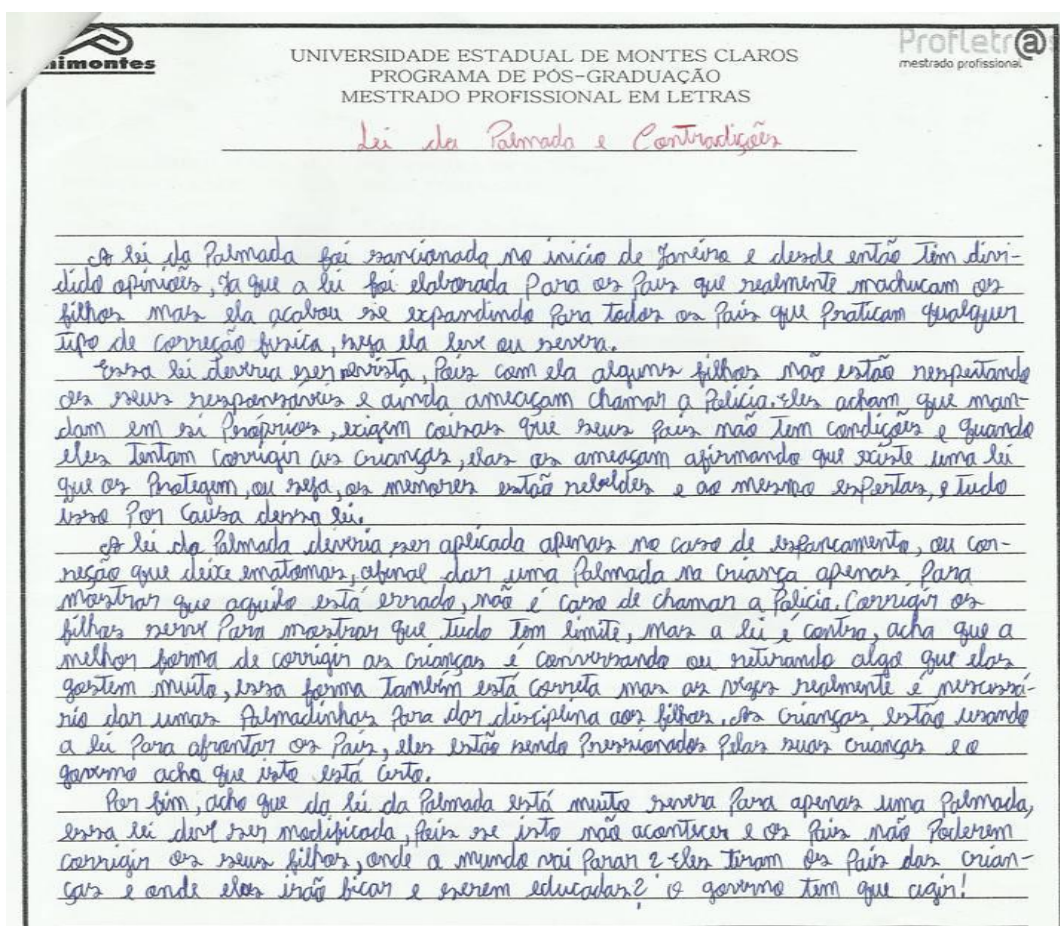 nimontes
ProfLetr@
mestrado profissional
UNIVERSIDADE ESTADUAL DE MONTES CLAROS
PROGRAMA DE PÓS-GRADUAÇÃO
MESTRADO PROFISSIONAL EM LETRAS
Lei da Palmada e Contradições
A lei da Palmada foi sancionada no início de Janeiro e desde então tem divi-
dido opiniões, Ja que a lei foi elaborada Para os Pais que realmente machucam os
filhos mas ela acabou se expandindo Para todos os Pais que Praticam qualquer
tipo de correção fisica, seja ela leve ou severa.
Essa lei deveria ser revista, Pois com ela alguns filhos não estão respeitando
os seus responsáveis e ainda ameaçam chamar a Policia. Eles acham que man-
dam em si Próprios, exigem coisas que seus Pais não tem condições e quando
eles tentam corrigir as crianças, elas os ameaçam afirmando que existe uma lei
que os Protegem, ou seja, os menores estão rebeldes e ao mesmo espertas, e tudo
isso Por causa dessa lei.
A lei da Palmada deveria ser aplicada apenas no caso de espancamento, ou cor-
reção que deixe ematomas, afinal dar uma Palmada na criança apenas Para
mostrar que aquilo está errado, não é caso de chamar a Policia. Corrigir os
filhos serve Para mostrar que tudo tem limite, mas a lei é contra, acha que a
melhor forma de corrigir as crianças é conversando ou retirando algo que elas
gostem muito, essa forma também está correta mas as vezes realmente é nescessá-
rio dar umas Palmadinhas Para dar disciplina aos filhos. As crianças estão usando
a lei Para afrontar os Pais, eles estão sendo Pressionados Pelas suas crianças e o
governo acha que isto está certo.
Por fim, acho que da lei da Palmada está muito severa Para apenas uma Palmada,
essa lei deve ser modificada, Pois se isto não acontecer e os Pais não Poderem
corrigir os seus filhos, onde o mundo vai Parar? Eles tiram os Pais das crian-
ças e onde elas irão ficar e serem educadas? O governo tem que agir!